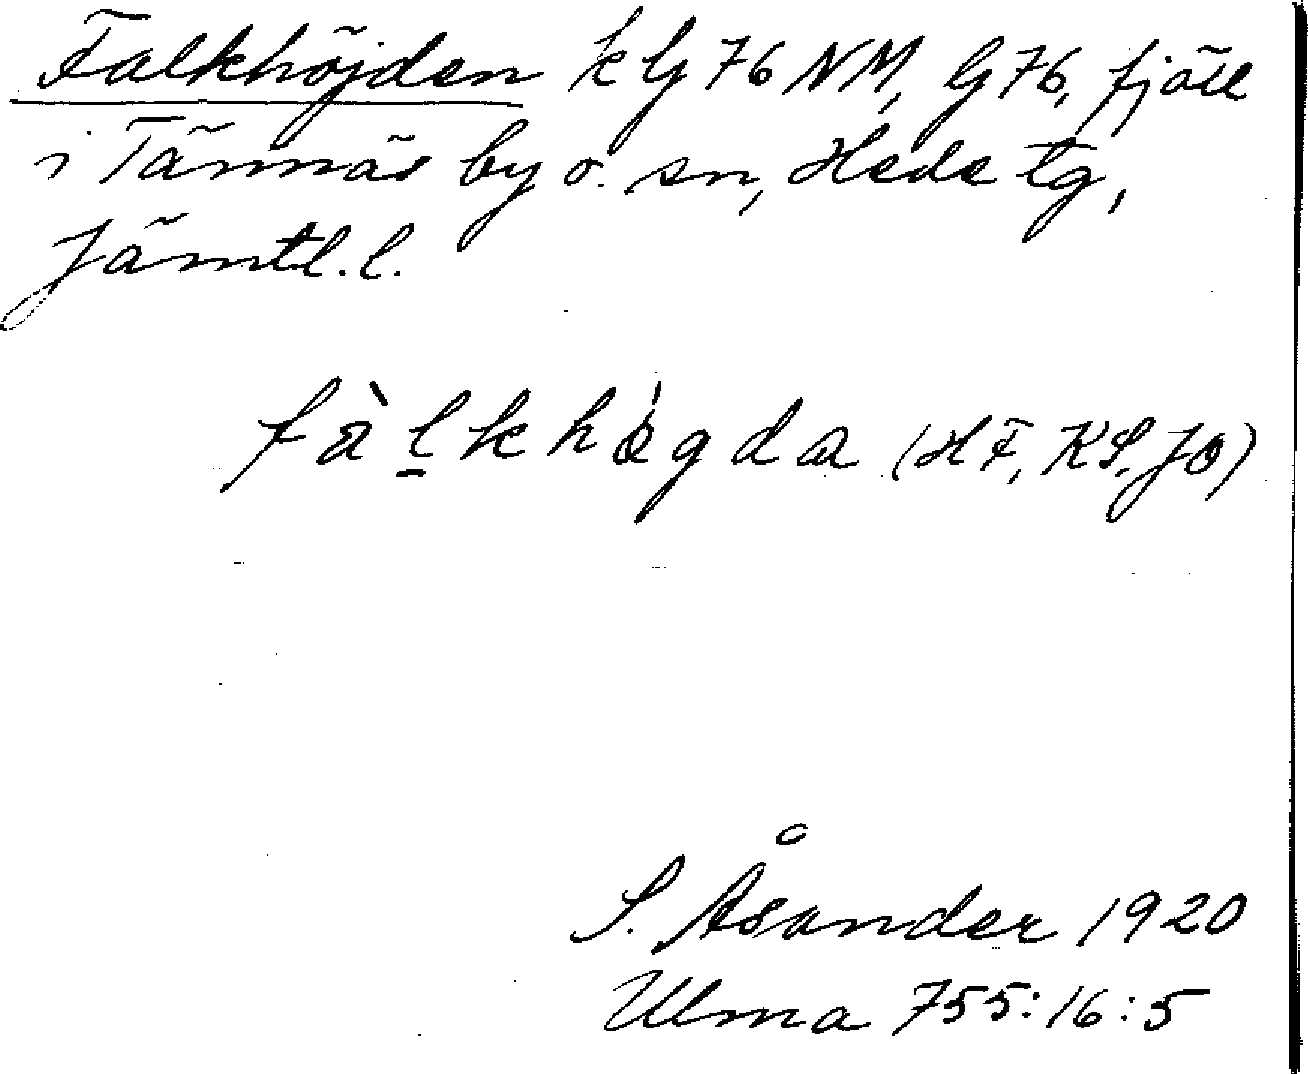 Falkhöjden k G 76 NM, G 76, fjäll
i Tännäs by o. sn, Hede tg,
Jämtl. l.
fàl̠khǿgda (HF, KS, JO)
S. Åsander 1920
Ulma 755:16:5